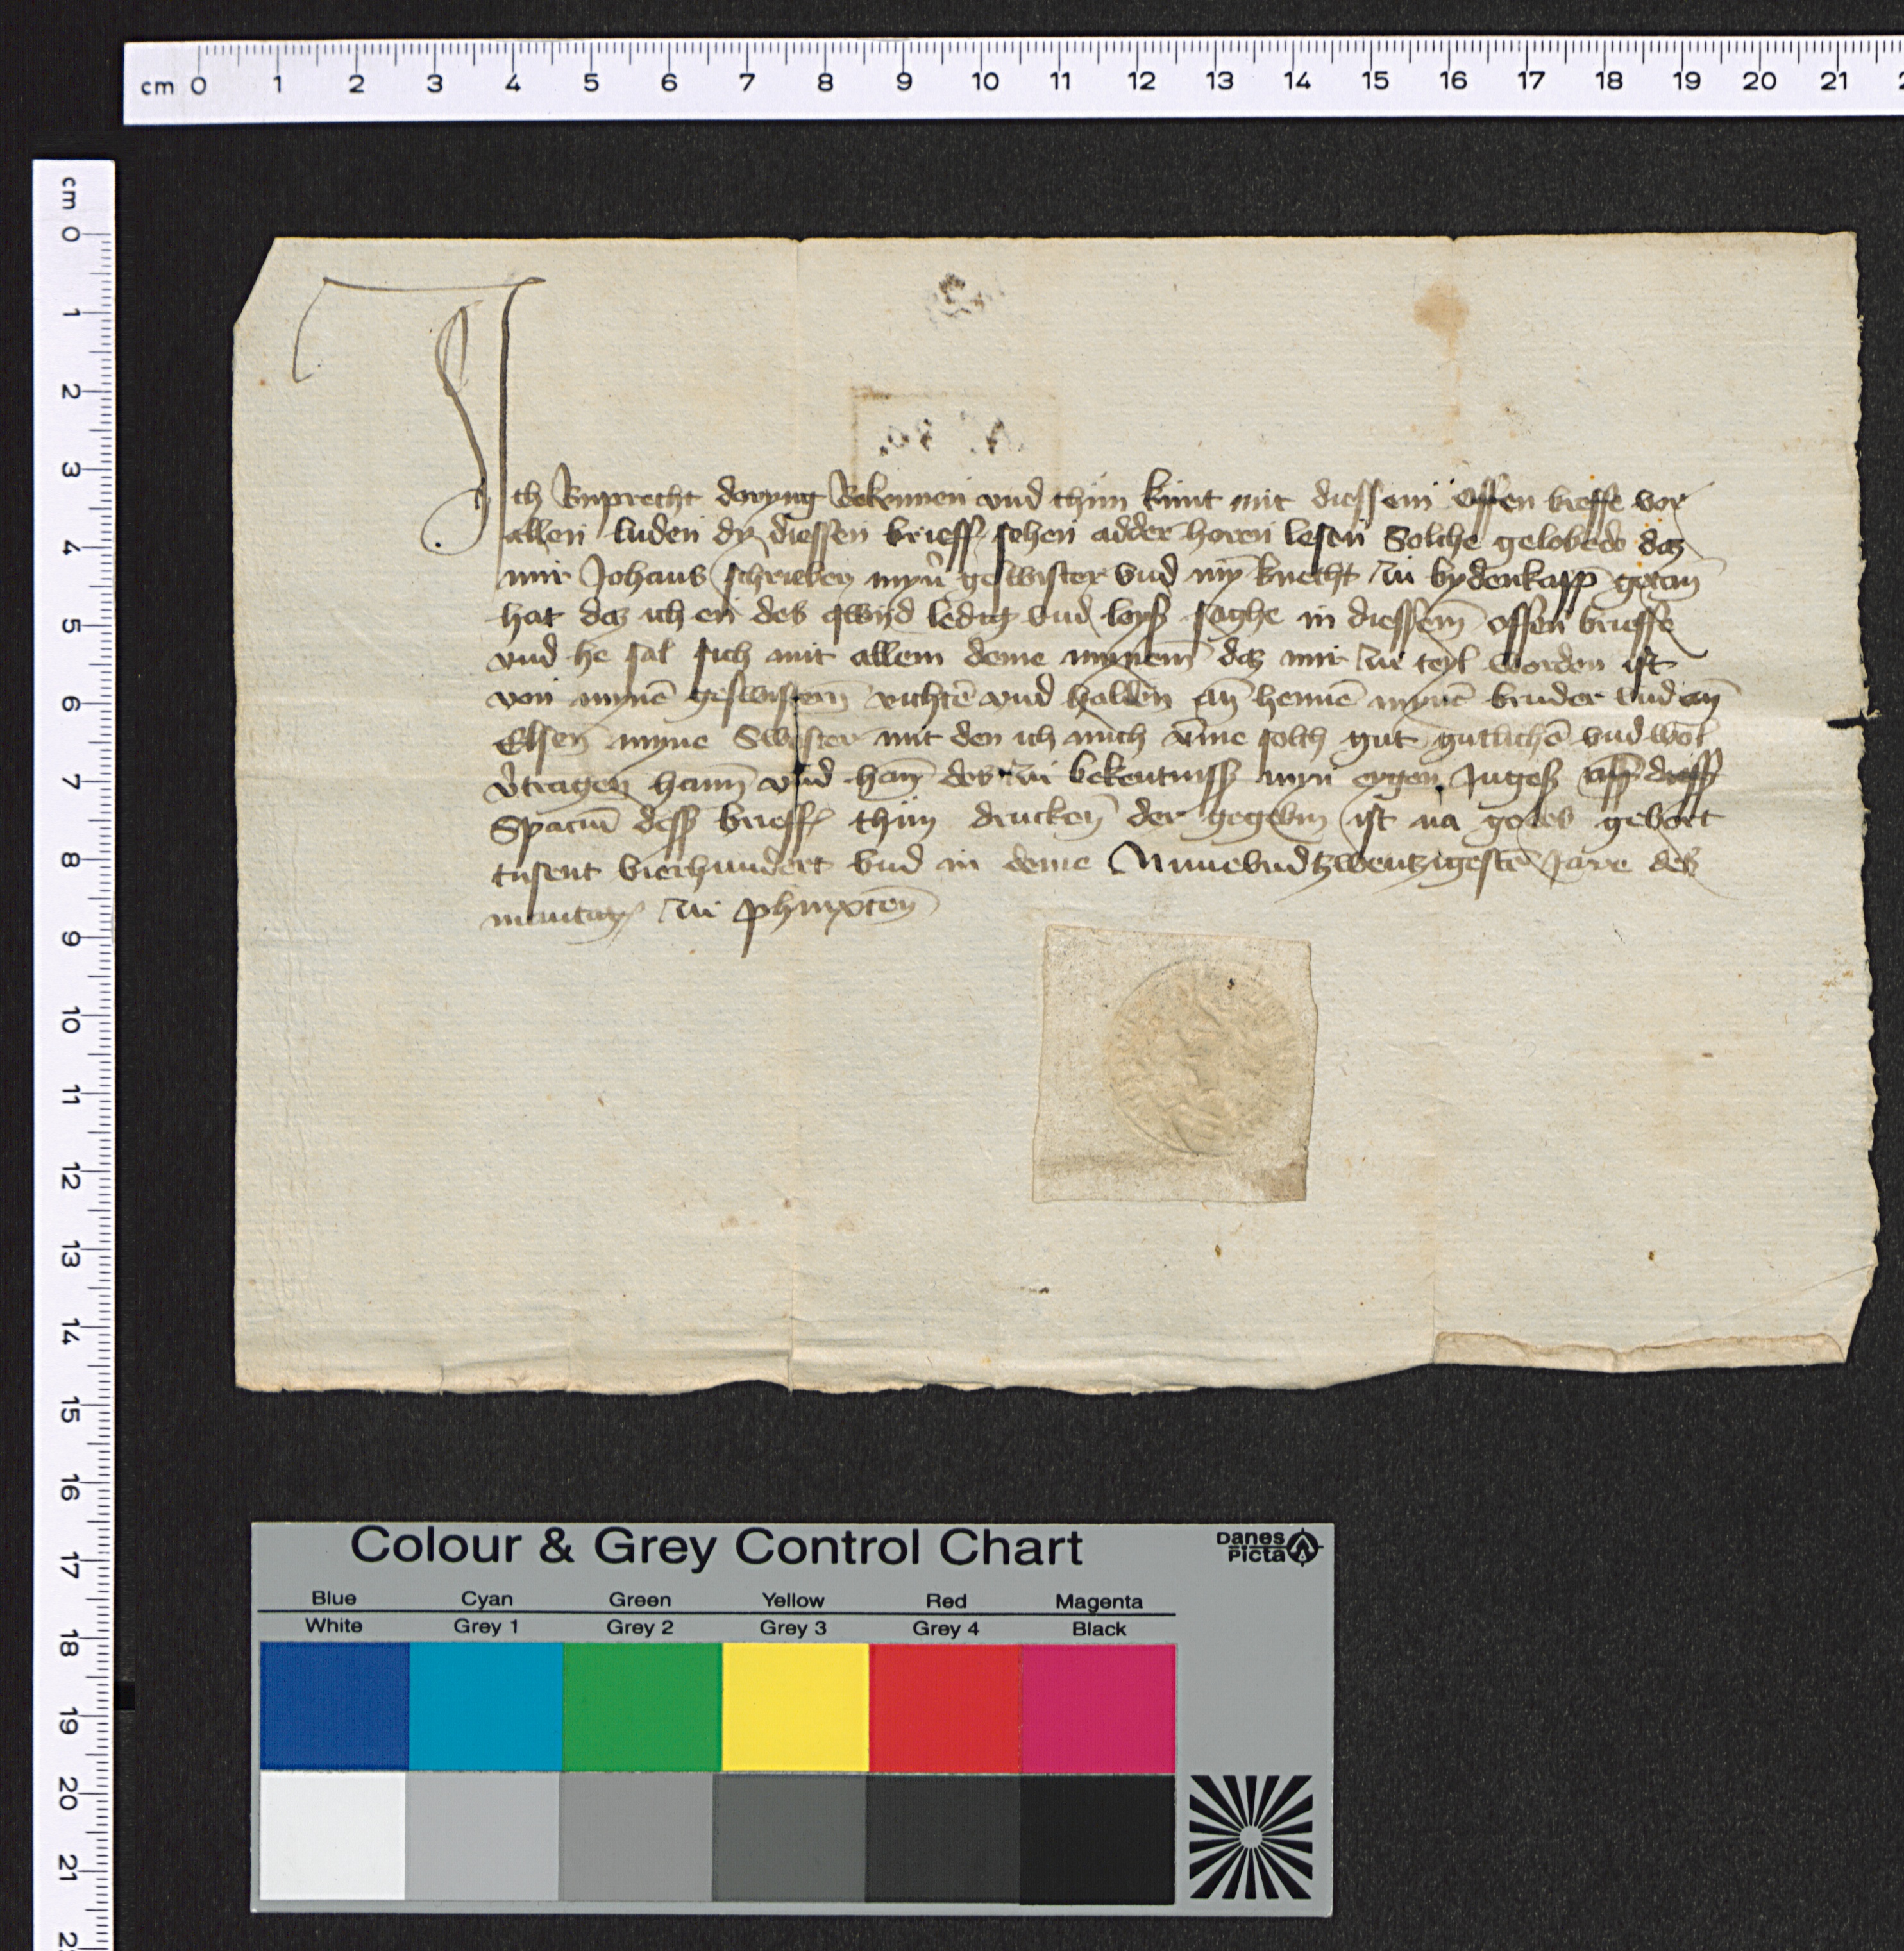 cm 0 1 2 3 4 5 6 7 8 9 10 11 12 13 14 15 16 17 18 19 20 21
cm 0 1 2 3 4 5 6 7 8 9 10 11 12 13 14 15 16 17 18 19 20 21
Ich Rupprecht doryng Bekennen vnd thun kunt mit diessem offen brieffe vor
allen luden dy diessen brieff sehen adder horen lesen Solche gelobede daz
mir Johans schrieben myn̄ geswister vnd my̅ knecht zu bydenkapp̄ getan̄
hat daz ich en des qwijd ledig vnd loyß saghe in diessem̄ offen brieffe
vnd he sal sich mit allem deme mynem̄ daz mir zu teyl worden ist
von mynē geswistern̄ richtē vnd halden an̄ hennē mynē bruder vnd an̄
Elsen̄ myne Swester mit den ich mich v̄me solch gut gutlichē vnd wol
v̄tragen han̄ vnd han̄ des zu bekentniss myn eygen Ingeß vff diess
Spaciū dess brieff thun drucken̄ der gegebin ist na godes gebort
tusent vierhundert vnd in deme Nunevndtzwentzigestē Jare des
mantag zu phinxten̄
Colour & Grey Control Chart
Danes Picta
Blue Cyan Green Yellow Red Magenta
White Grey 1 Grey 2 Grey 3 Grey 4 Black